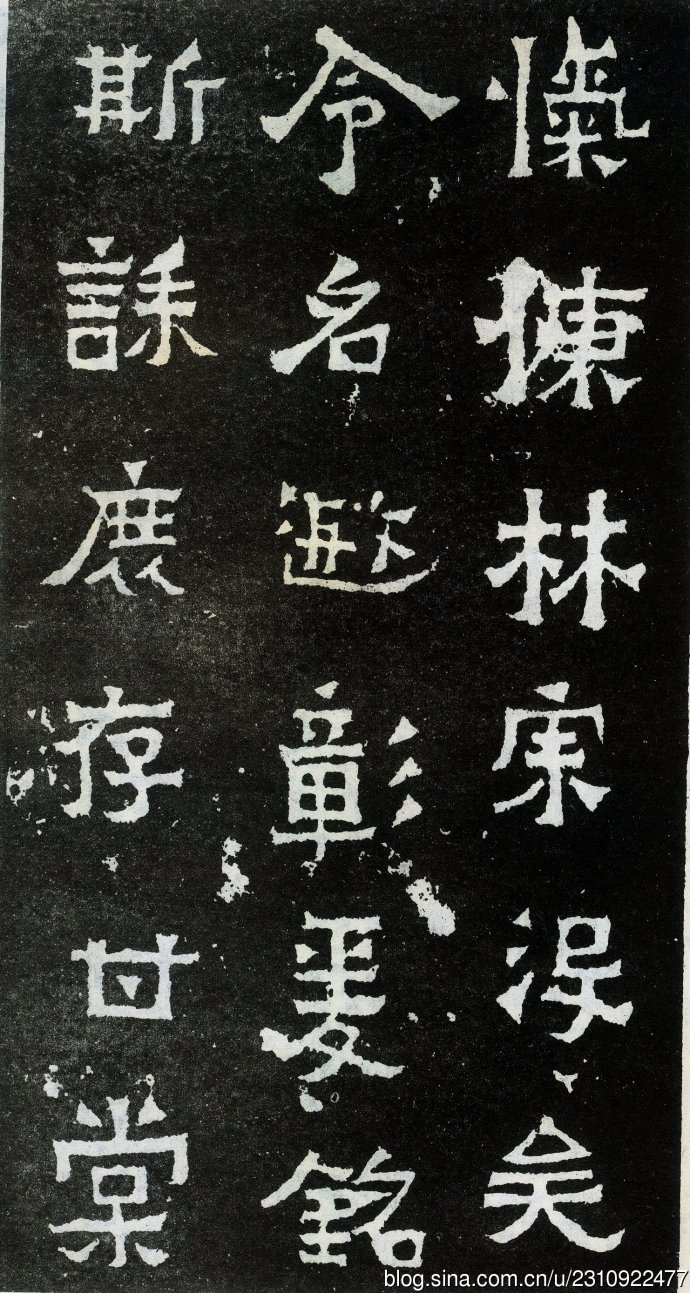 愾慷林宗没矣
令名遐彰爰銘
斯誄庶存甘棠
blog.sina.com.cn/u/2310922477